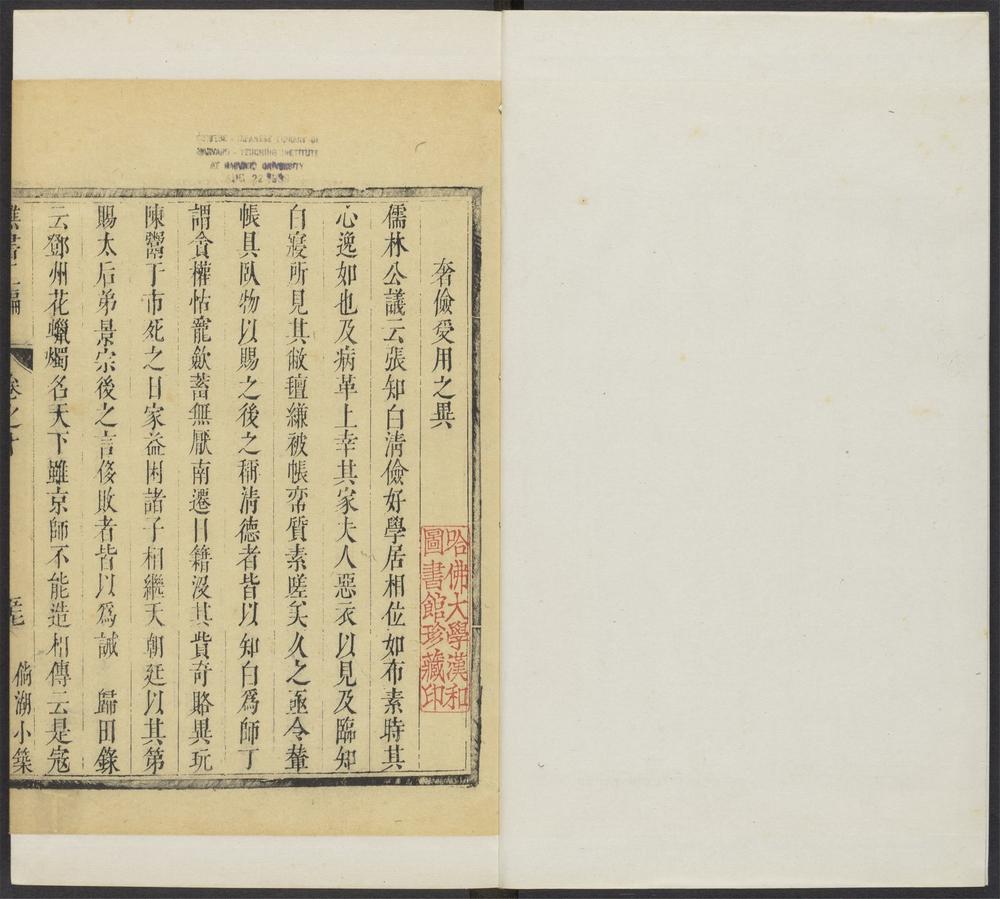 奢儉受用之異
儒林公議云張知白清儉好學居相位如布素時其
心逸如也及病革上幸其家夫人惡衣以見及臨知
白寢所見其敝氊縑被帳帟質素嗟矣久之亟令輦
帳具臥物以賜之後之稱清德者皆以知白爲師丁
謂貪權怙寵歛蓄無厭南遷日籍沒其貲奇賂異玩
陳鬻于市死之日家益困諸子相繼天朝廷以其第
賜太后弟景宗後之言侈敗者皆以爲誡 歸田錄
云鄧州花蠟燭名天下雖京師不能造相傳云是寇
樵書二編 卷之十 倘湖小築
哈佛大學漢和
圖書館珍藏印
CHINESE - JAPANESE LIBRARY OF
HARVARD - YENCHING INSTITUTE
AT HARVARD UNIVERSITY